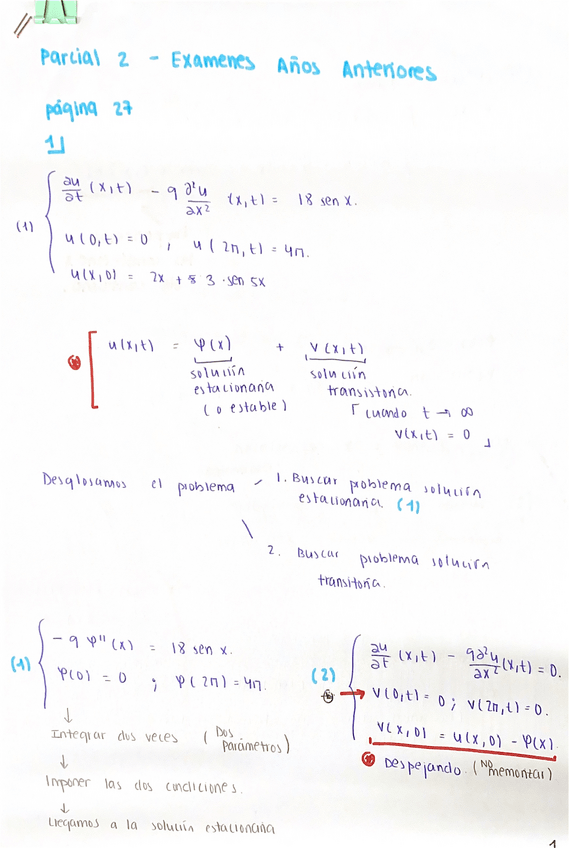 Parcial 2 - Examenes Años Anteriores
página 27
1
(1)
∂u/∂t (x,t) - 9 ∂²u/∂x² (x,t) = 18 sen x.
u(0,t) = 0 , u(2π,t) = 4π.
u(x,0) = 2x + 3·sen 5x
u(x,t) = φ(x) + v(x,t)
solución solución
estacionaria transistoria.
(o estable) ⌈cuando t → ∞
v(x,t) = 0⌋
Desglosamos el problema
1. Buscar problema solución
estacionaria (1)
2. Buscar problema solución
transitoria.
(1)
-9 φ''(x) = 18 sen x.
φ(0) = 0 ; φ(2π) = 4π.
↓
Integrar dos veces (Dos
parámetros)
↓
Imponer las dos condiciones.
↓
Llegamos a la solución estacionaria
(2)
∂u/∂t (x,t) - 9∂²u/∂x² (x,t) = 0.
→ v(0,t) = 0 ; v(2π,t) = 0.
v(x,0) = u(x,0) - φ(x)
Despejando. (No memorizar)
1